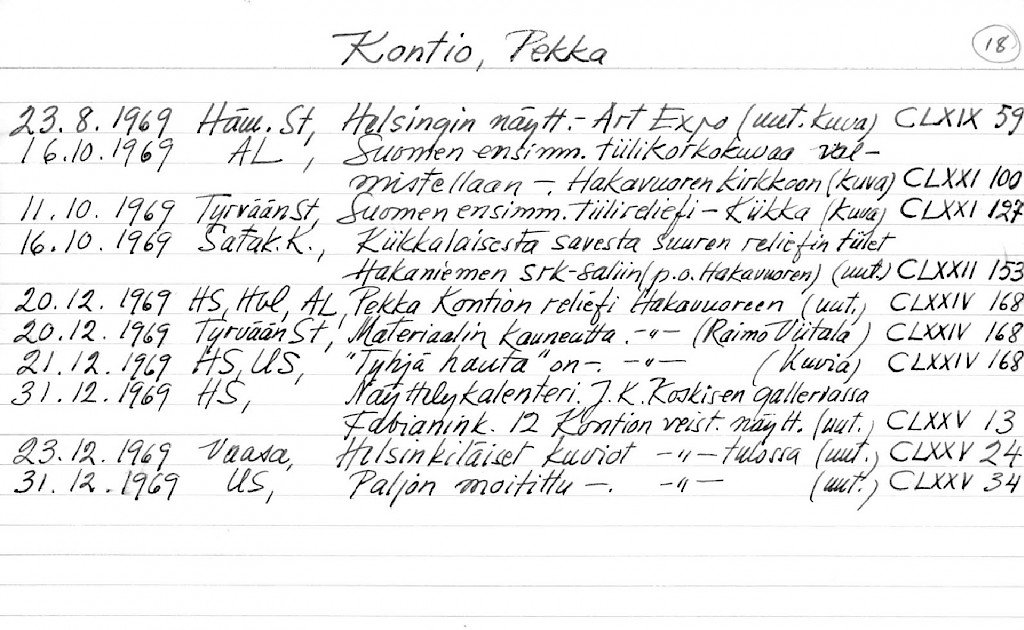 Kontio, Pekka 18
23.8.1969 Häm.St, Helsingin näytt.- Art Expo (uut.kuva) CLXIX 59
16.10.1969 AL, Suomen ensimm. tiilikorkokuvaa val-
mistellaan -. Hakavuoren kirkkoon (kuva) CLXXI 100
11.10.1969 TyrväänSt, Suomen ensimm. tiilireliefi - Kiikka (kuva) CLXXI 127
16.10.1969 Satak.K., Kiikkalaisesta savesta suuren reliefin tiilet
Hakaniemen srk-saliin (p.o. Hakavuoren) (uut.) CLXXII 153
20.12.1969 HS, Hbl, AL, Pekka Kontion reliefi Hakavuoreen (uut.) CLXXIV 168
20.12.1969 TyrväänSt, Materiaalin kauneutta. -"- (Raimo Viitala) CLXXIV 168
21.12.1969 HS, US, "Tyhjä hauta" on -. -"- (Kuvia) CLXXIV 168
31.12.1969 HS, Näyttelykalenteri. J.K. Koskisen galleriassa
Fabianink. 12 Kontion veist. näytt. (uut.) CLXXV 13
23.12.1969 Vaasa, Helsinkiläiset kuviot -"- tulossa (uut.) CLXXV 24
31.12.1969 US, Paljon moitittu -. -"- (uut.) CLXXV 34